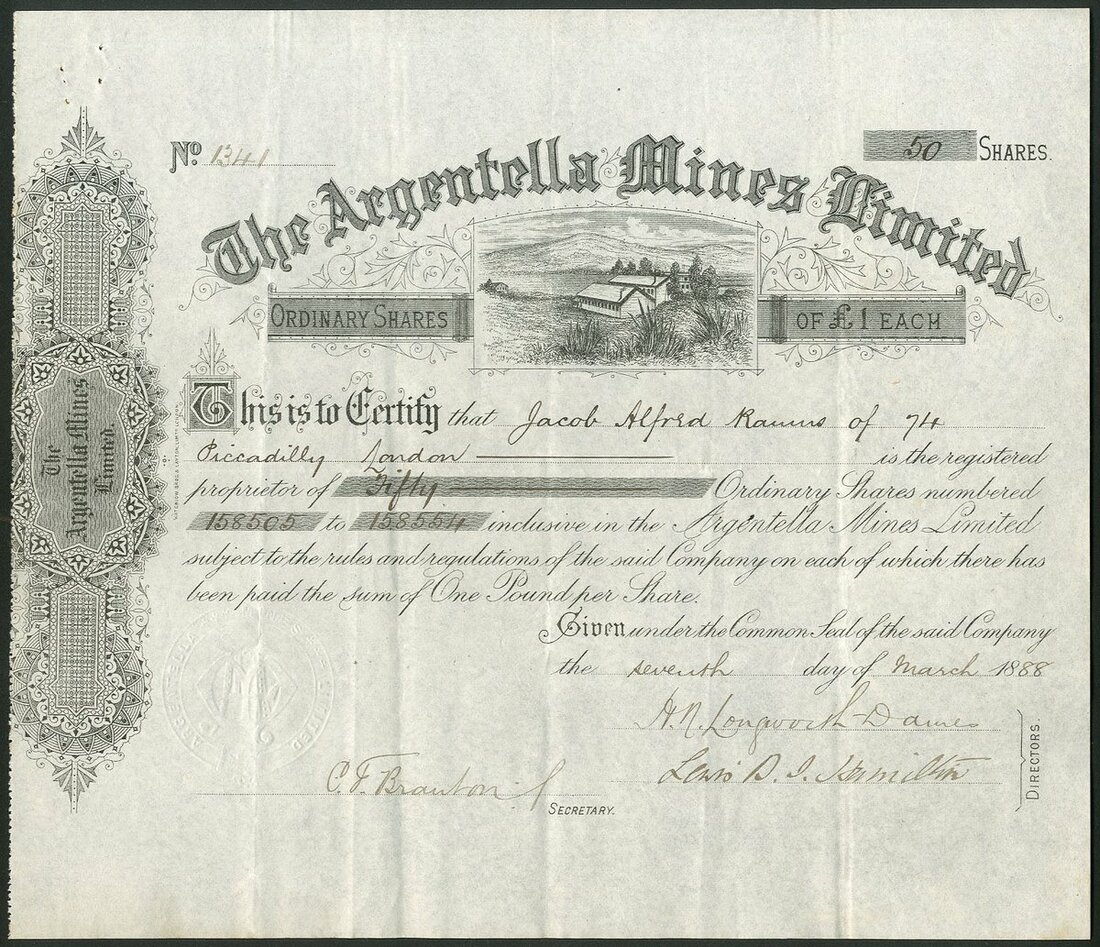 No 1341
50 SHARES.
The Argentella Mines Limited
ORDINARY SHARES OF £1 EACH
This is to Certify that Jacob Alfred of 74
Piccadilly London is the registered
proprietor of Fifty Ordinary Shares numbered
158505 to 158554 inclusive in the Argentella Mines Limited
subject to the rules and regulations of the said Company on each of which there has
been paid the sum of One Pound per Share.
Given under the Common Seal of the said Company
the seventh day of March 1888
H. R. Longworth-Dames
Lewis B. I. Hamilton
DIRECTORS.
C. F. Branton
SECRETARY.
The
Argentella Mines
Limited.